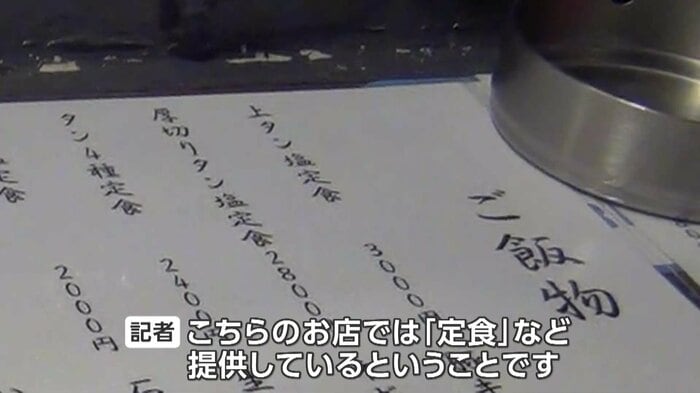 ご飯物
上タン塩定食 3000円
厚切りタン塩定食 2800
タン4種定食 2400
定食 2000円
記者 こちらのお店では「定食」など
提供しているということです